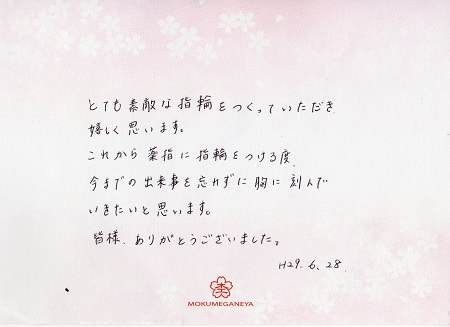 とても素敵な指輪をつくっていただき
嬉しく思います。
これから薬指に指輪をつける度、
今までの出来事を忘れずに胸に刻んで
いきたいと思います。
皆様、ありがとうございました。
H29.6.28.
MOKUMEGANEYA